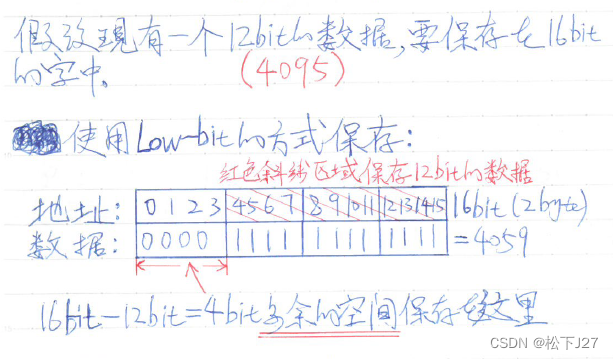 假设现有一个12bit的数据,要保存在16bit
的字中。
(4095)
使用Low-bit的方式保存:
红色斜线区域保存12bit的数据
地址: 0 1 2 3 4 5 6 7 8 9 10 11 12 13 14 15 16bit(2byte)
数据: 0 0 0 0 1 1 1 1 1 1 1 1 1 1 1 1 =4059
16bit-12bit=4bit多余的空间保存在这里
CSDN @松下J27